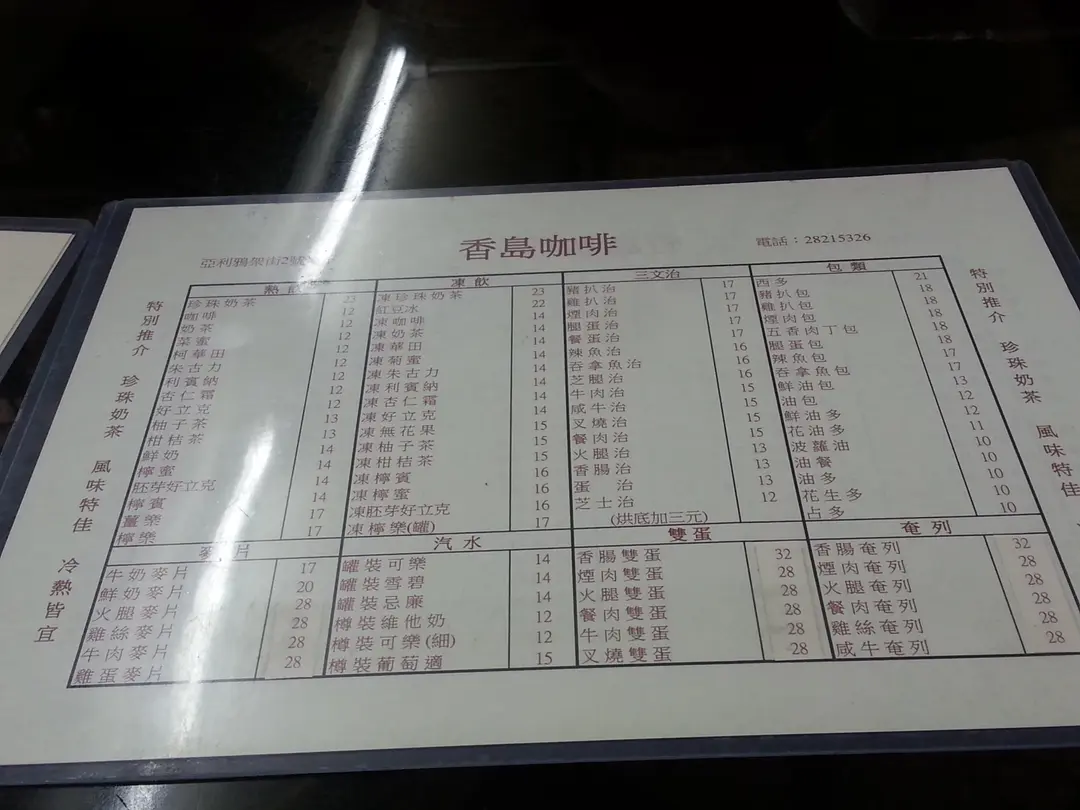 香島咖啡
亞利鴉架街2號
電話：28215326
特別推介 珍珠奶茶 風味特佳 冷熱皆宜
熱飲
珍珠奶茶 23
咖啡 12
奶茶 12
菜蜜 12
柯華田 12
朱古力 12
利賓納 12
杏仁霜 12
好立克 12
柚子茶 13
柑桔茶 13
鮮奶 14
檸蜜 14
胚芽好立克 14
檸賓 14
薑樂 17
檸樂 17
凍飲
凍珍珠奶茶 23
紅豆冰 22
凍咖啡 14
凍奶茶 14
凍華田 14
凍菊蜜 14
凍朱古力 14
凍利賓納 14
凍杏仁霜 14
凍好立克 14
凍無花果 15
凍柚子茶 15
凍柑桔茶 15
凍檸賓 16
凍檸蜜 16
凍胚芽好立克 16
凍檸樂(罐) 17
三文治
豬扒治 17
雞扒治 17
煙肉治 17
腿蛋治 17
餐蛋治 17
辣魚治 16
吞拿魚治 16
芝腿治 16
牛肉治 15
咸牛治 15
叉燒治 15
餐肉治 15
火腿治 13
香腸治 13
蛋治 13
芝士治 12
(烘底加三元)
包類
西多 21
豬扒包 18
雞扒包 18
煙肉包 18
五香肉丁包 18
腿蛋包 18
辣魚包 17
吞拿魚包 17
鮮油包 13
油包 12
鮮油多 12
花油多 11
波蘿油 10
油餐 10
油多 10
花生多 10
占多 10
麥片
牛奶麥片 17
鮮奶麥片 20
火腿麥片 28
雞絲麥片 28
牛肉麥片 28
雞蛋麥片 28
汽水
罐裝可樂 14
罐裝雪碧 14
罐裝忌廉 14
樽裝維他奶 12
樽裝可樂(細) 12
樽裝葡萄適 15
雙蛋
香腸雙蛋 32
煙肉雙蛋 28
火腿雙蛋 28
餐肉雙蛋 28
牛肉雙蛋 28
叉燒雙蛋 28
奄列
香腸奄列 32
煙肉奄列 28
火腿奄列 28
餐肉奄列 28
雞絲奄列 28
咸牛奄列 28
特別推介 珍珠奶茶 風味特佳